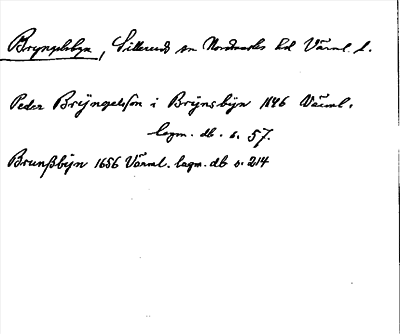 Bryngelsbyn, Silleruds sn Nordmarks hd Värml. l.
Peder Brÿngelsson i Brÿnsbÿn 1646 Värml.
lagm. db. s. 57.
Brunßbÿn 1656 Värml. lagm. db s. 214